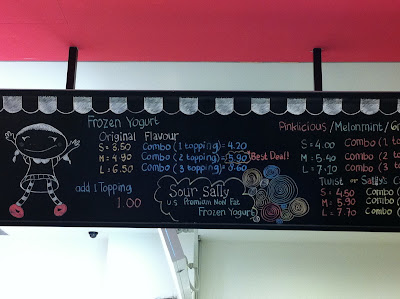 Frozen Yogurt
Original Flavour
S = 3.50 Combo (1 topping) = 4.20
M = 4.90 Combo (2 topping) = 5.90 Best Deal!
L = 6.50 Combo (3 topping) =
add 1 Topping
1.00
Sour Sally
U.S Premium Non Fat
Frozen Yogurt
Pinklicious /Melonmint/
S = 4.00 Combo (1
M = 5.40 Combo (2
L = 7.10 Combo (3
Twist or Sally's
S = 4.50 Combo
M = 5.90 Combo
L = 7.70 Combo